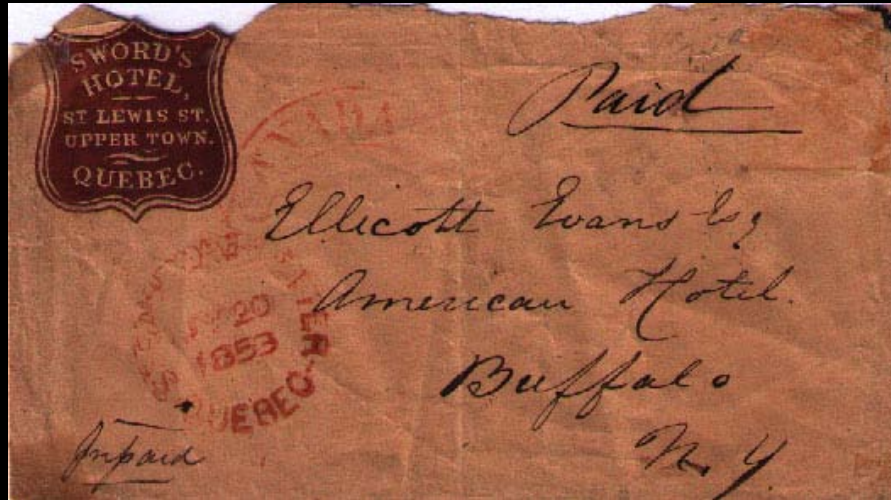 SWORD'S
HOTEL,
ST. LEWIS ST.
UPPER TOWN.
QUEBEC.
Paid
CANADA
Ellicott Evans Esq
American Hotel.
Buffalo
N. Y
LETTER
20
1853
QUEBEC